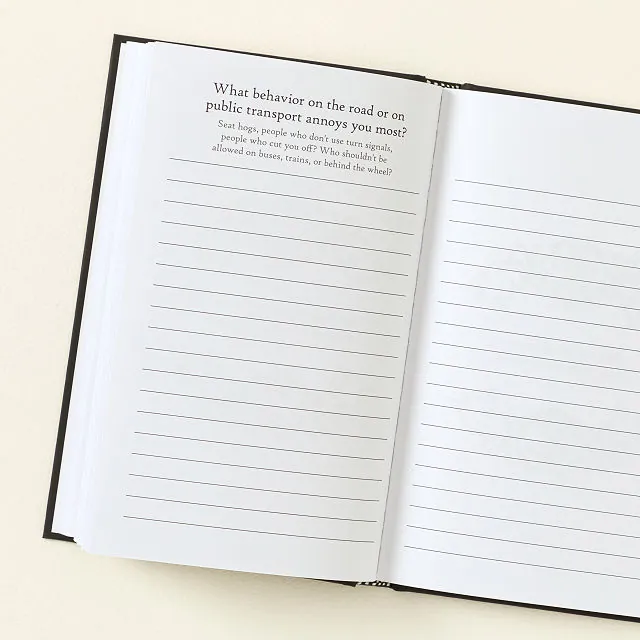 What behavior on the road or on
public transport annoys you most?
Seat hogs, people who don't use turn signals,
people who cut you off? Who shouldn't be
allowed on buses, trains, or behind the wheel?